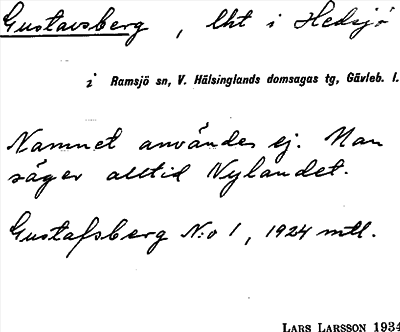 Gustavsberg, lht i Hedsjö
i Ramsjö sn, V. Hälsinglands domsagas tg, Gävleb. l.
Namnet användes ej. Man
säger alltid Nylandet.
Gustafsberg N:o 1, 1924 mtl.
LARS LARSSON 1934